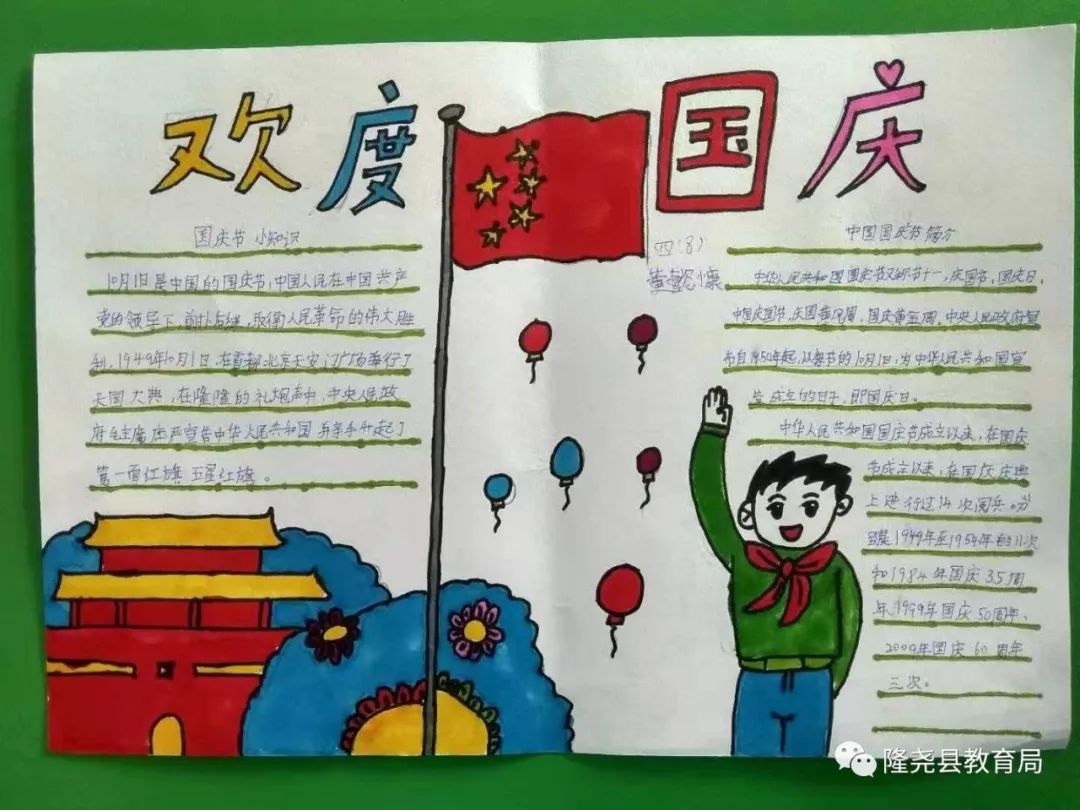 欢度国庆
国庆节 小知识
10月1日是中国的国庆节,中国人民在中国共产
党的领导下,前扑后继,取得人民革命的伟大胜
利,1949年10月1日,在首都北京天安门广场举行了
天国大典,在隆隆的礼炮声中,中央人民政
府毛主席庄严宣告中华人民共和国 并亲手升起了
第一面红旗 五星红旗。
四(8)
中国国庆节简介
中华人民共和国国庆节又称节十一,庆国节,国庆日,
中国庆国节,庆国黄风周,国庆黄金周,中央人民政府宣
布自1950年起,以每节的10月1日,为中华人民共和国宣
告成立的日子,即国庆日。
中华人民共和国国庆节成立以来,在国庆
节成立以来,在国庆庆典
上进行过14次阅兵。分
别是1949年至1954年的11次
和1984年国庆35周
年,1999年国庆50周年、
2009年国庆60周年
三次。
隆尧县教育局